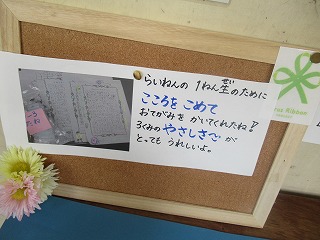 らいねんの 1ねん生のために
せい
こころをこめて
おてがみを かいてくれたね!
3くみの やさしさが
とっても うれしいよ。
Ribbon